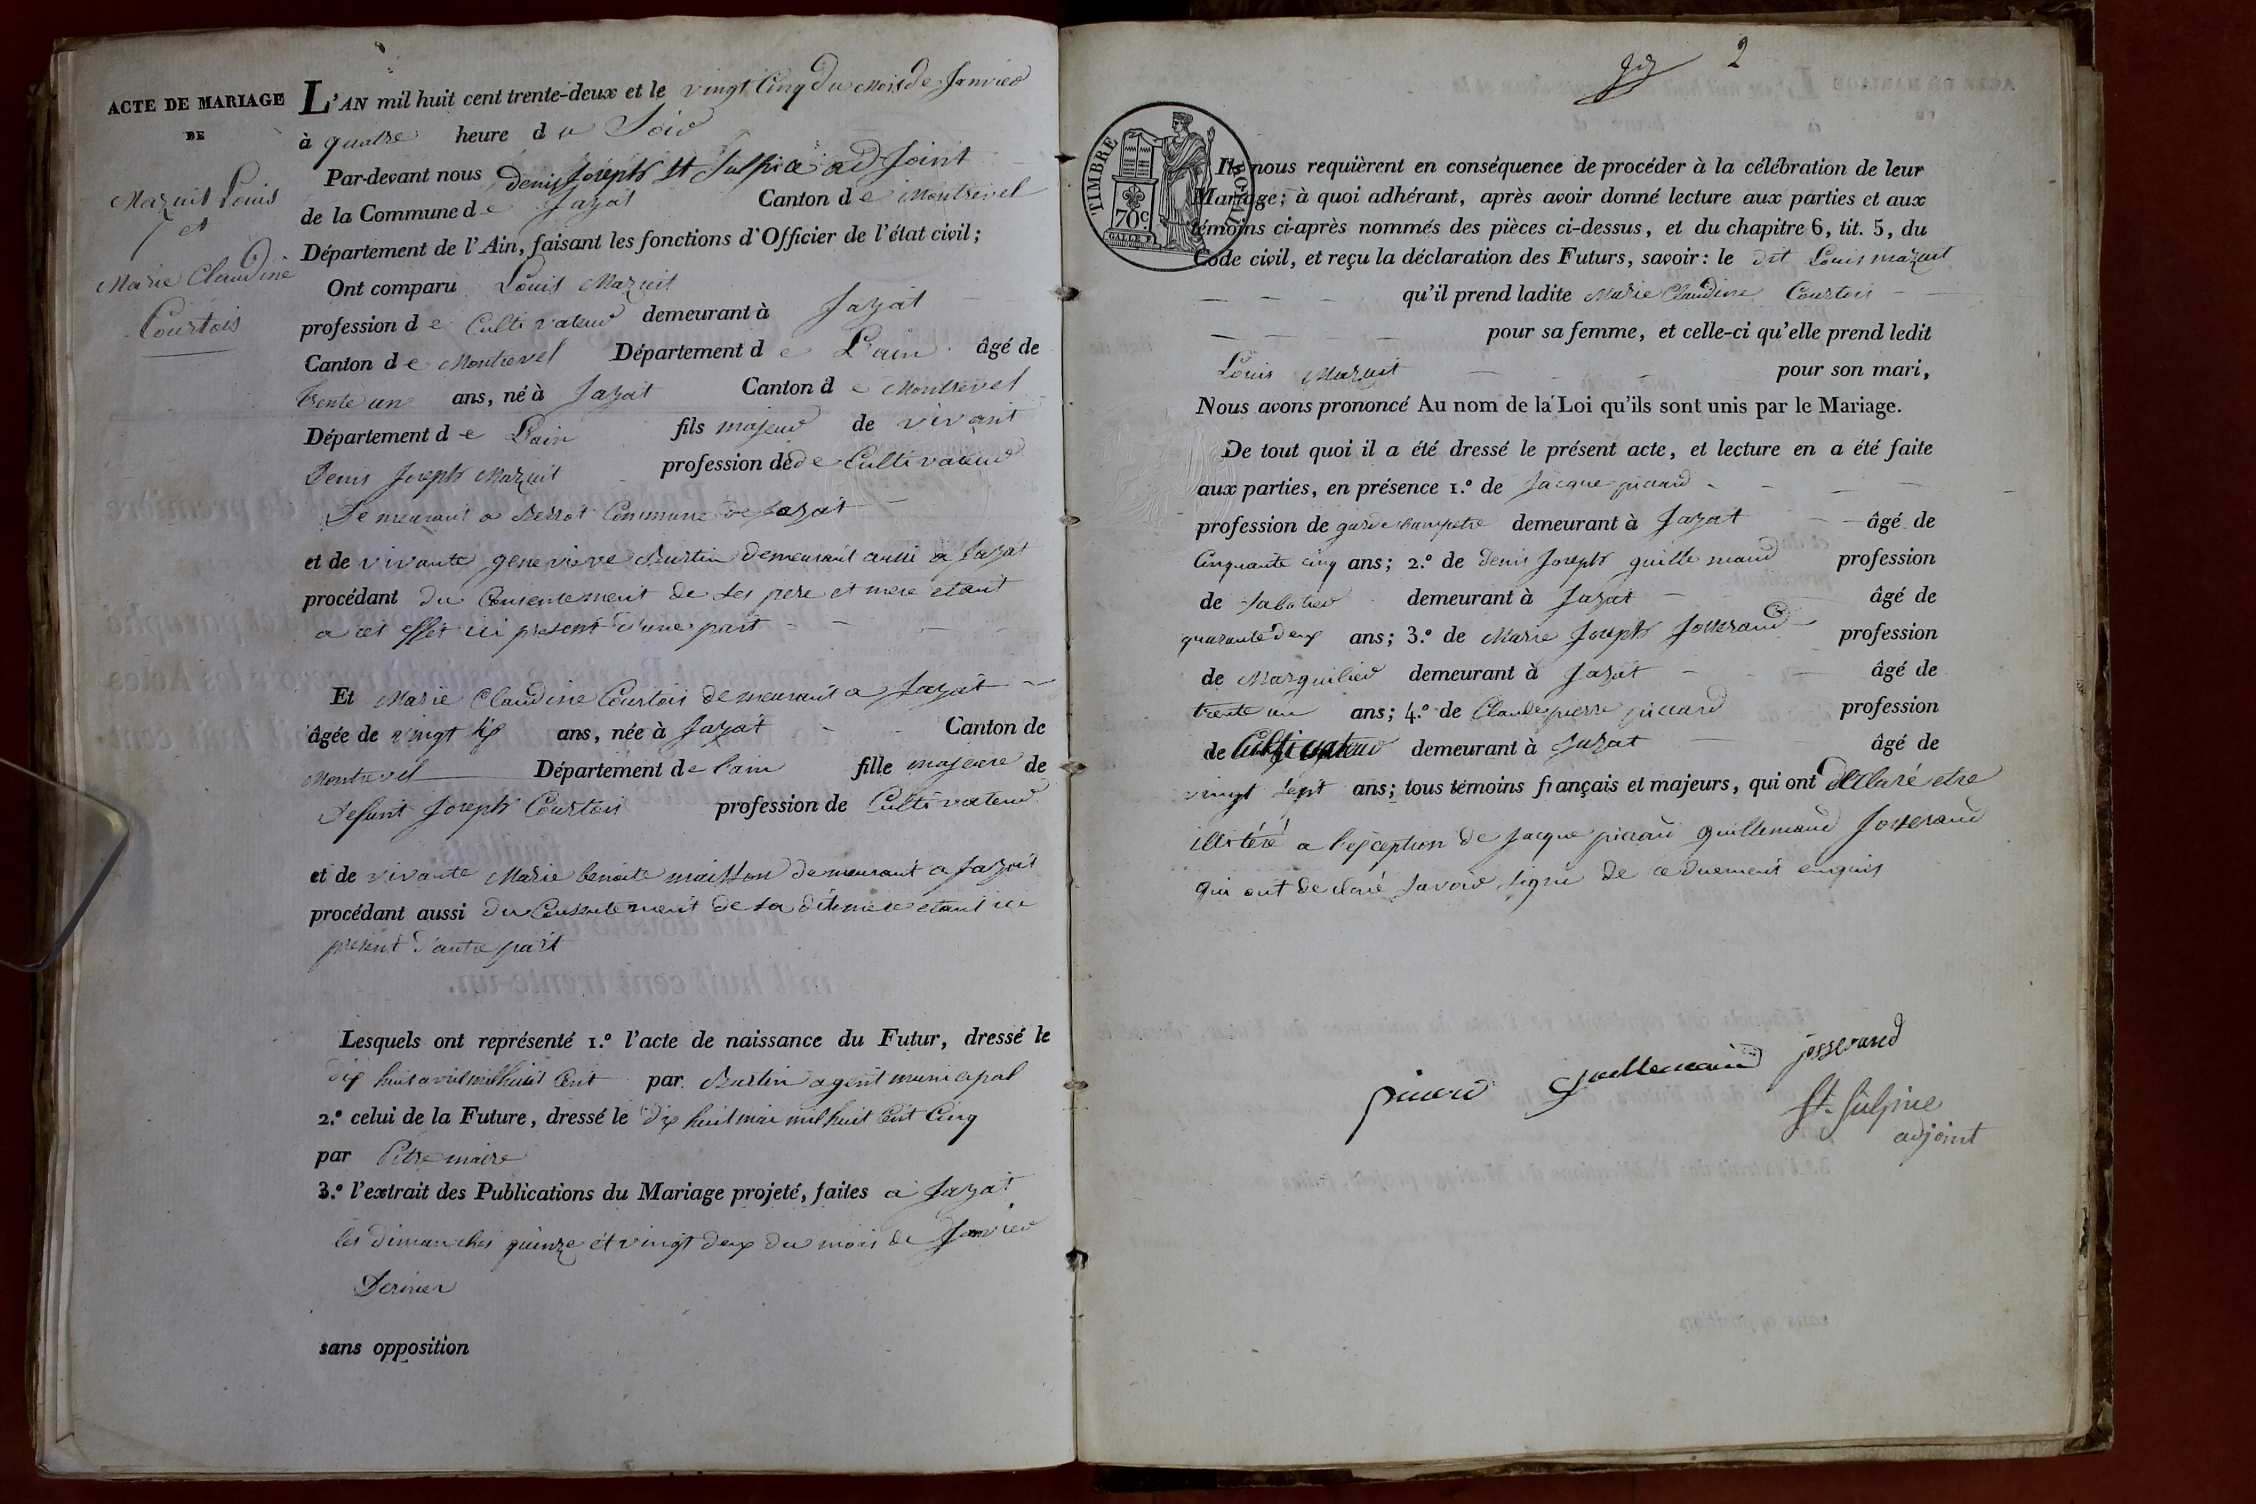 ACTE DE MARIAGE
DE
Mazuit Louis
et
Marie Claudine
Courtois
L'AN mil huit cent trente-deux et le vingt Cinq du mois de Janvier
à quatre heure d u Soir
Par-devant nous denis Joseph St Sulpice adJoint
de la Commune de Jayat Canton de Montrevel
Département de l'Ain, faisant les fonctions d'Officier de l'état civil;
Ont comparu Louis Mazuit
profession de Cultivateur demeurant à Jayat
Canton de Montrevel Département de L'ain âgé de
trente un ans, né à Jayat Canton de Montrevel
Département de L'ain fils majeur de vivant
Denis Joseph Mazuit profession de de Cultivateur
Demeurant a Commune de Jayat
et de vivante genevieve Burtin demeurant aussi a Jayat
procédant du Consentement de ses pere et mere etant
a cet effet ici present d'une part
Et Marie Claudine Courtois demeurant a Jayat
âgée de vingt six ans, née à Jayat Canton de
Montrevel Département de l'ain fille majeure de
Defunt Joseph Courtois profession de Cultivateur
et de vivante Marie benoite maisson demeurant a Jayat
procédant aussi du Consentement de sa dite mere etant ici
present d'autre part
Lesquels ont représenté 1.º l'acte de naissance du Futur, dressé le
dix huit avril mil huit Cent par Burtin agent municipal
2.º celui de la Future, dressé le dix huit mai mil huit Cent Cinq
par Pitre maire
3.º l'extrait des Publications du Mariage projeté, faites a Jayat
les dimanches quinze et vingt deux du mois de Janvier
Dernier
sans opposition
2
TIMBRE ROYAL
70 c.
Ils nous requièrent en conséquence de procéder à la célébration de leur
Mariage; à quoi adhérant, après avoir donné lecture aux parties et aux
témoins ci-après nommés des pièces ci-dessus, et du chapitre 6, tit. 5, du
Code civil, et reçu la déclaration des Futurs, savoir: le dit Louis mazuit
qu'il prend ladite Marie Claudine Courtois
pour sa femme, et celle-ci qu'elle prend ledit
Louis Mazuit pour son mari,
Nous avons prononcé Au nom de la Loi qu'ils sont unis par le Mariage.
De tout quoi il a été dressé le présent acte, et lecture en a été faite
aux parties, en présence 1.º de Jacque picard
profession de garde champetre demeurant à Jayat âgé de
Cinquante cinq ans; 2.º de Denis Joseph guillemaud profession
de Sabotier demeurant à Jayat âgé de
quarante deux ans; 3.º de Marie Joseph Josserand profession
de Marguilier demeurant à Jayat âgé de
trente un ans; 4.º de Claude pierre piccard profession
de Cultivateur demeurant à Jayat âgé de
vingt sept ans; tous témoins français et majeurs, qui ont declaré etre
illitéré a l'exception de Jacque picard guillemaud Josserand
qui ont declaré savoir signé de ce duement enquis
picard Guillemaud josserand
St Sulpice
adjoint